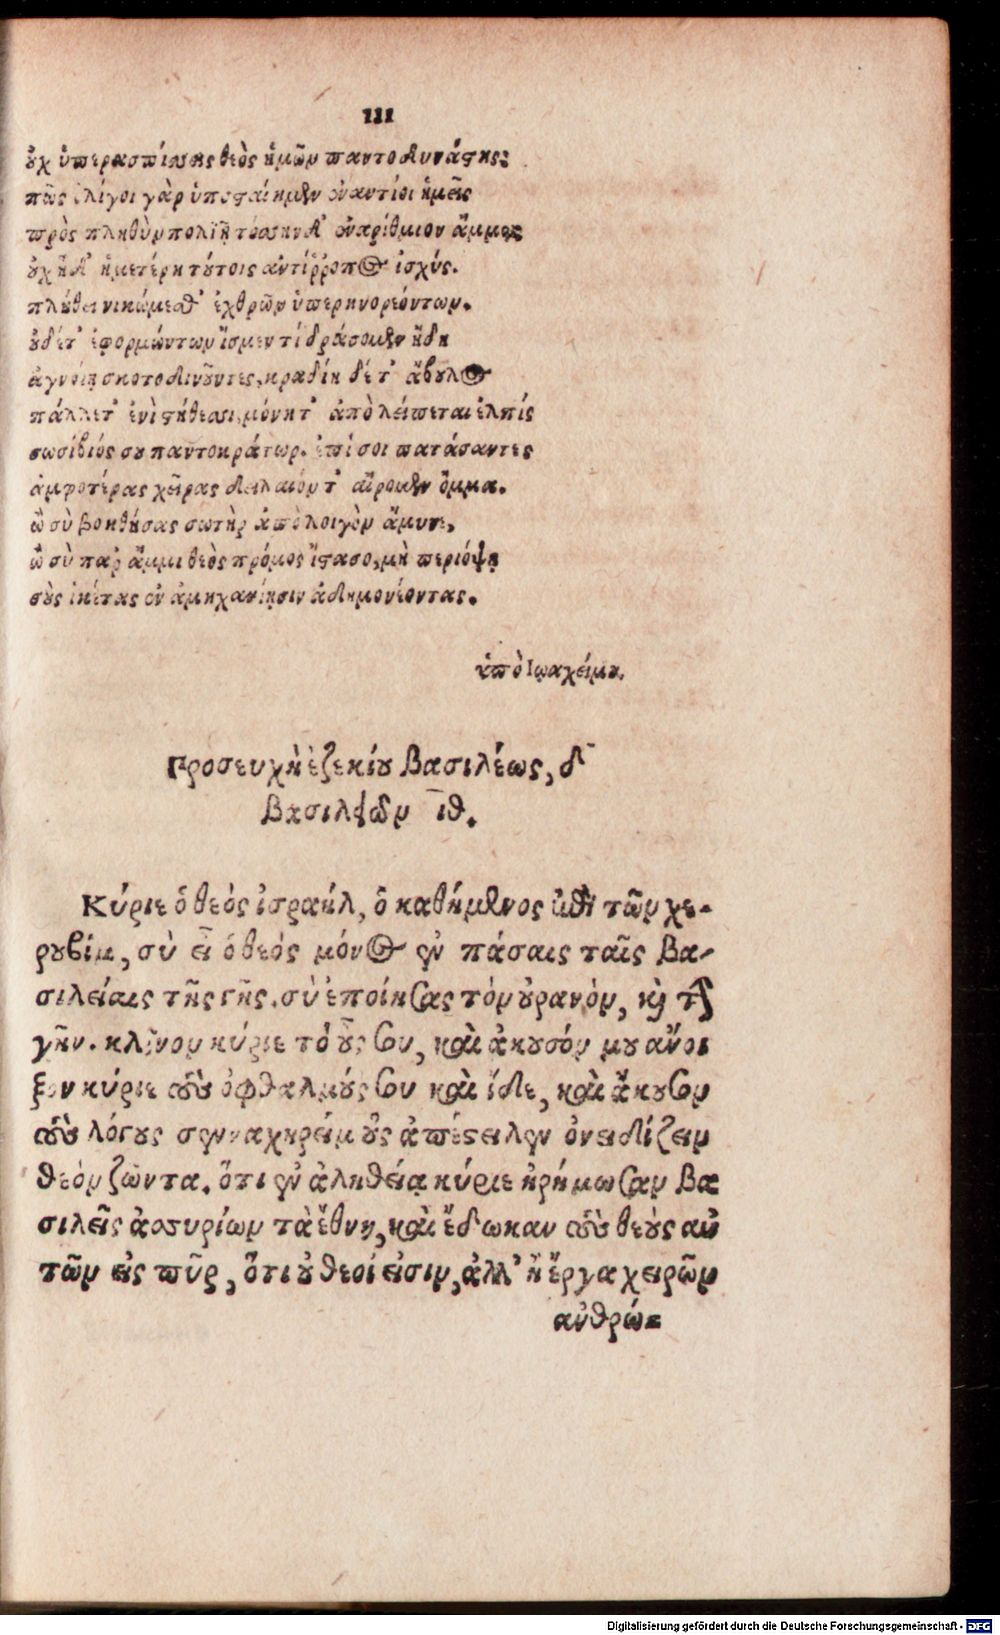 111
οὐχ ὑπερασπίσσῃς θεὸς ἡμῶν παντοδυνάστης;
πῶς ὀλίγοι γὰρ ὑποσταίημεν ἐναντίοι ἡμεῖς
πρὸς πληθὺν πολιῇ τόσσην δ' ἐναρίθμιον ἄμμῳ;
οὐχ ἥδ' ἡμετέρη τούτοις ἀντίῤῥοπος ἰσχύς.
πλήθει νικώμεσθ' ἐχθρῶν ὑπερηνορεόντων.
οὐδέτ' ἐφορμώντων ἴσμεν τί δράσομεν ἤδη
ἀγνοίῃ σκοτοδινοῦντες, κραδίη δέ τ' ἄβουλος
πάλλετ' ἐνὶ στήθεσσι, μόνη τ' ἀπὸ λείπεται ἐλπίς
σωσίβιός σου παντοκράτωρ. ἐπί σοι πατάσαντες
ἀμφοτέρας χεῖρας δειλαιόν τ' αἴρομεν ὄμμα.
ὦ σὺ βοηθήσας σωτὴρ ἀπὸ λοιγὸν ἄμυνε,
ὦ σὺ παρ ἄμμι θεὸς πρόμος ἵστασο, μὴ περιόψῃ
σοὺς ἱκέτας ἐν ἀμηχανίῃσιν ἀδημονέοντας.
ὑπὸ Ιωαχείμου.
Προσευχὴ ἐζεκίου Βασιλέως, δ
Βασιλειῶν ιθ.
Κύριε ὁ θεός ἰσραήλ, ὁ καθήμενος ἐπὶ τῶν χε-
ρουβίμ, σὺ εἶ ὁ θεός μόνος ἐν πάσαις ταῖς Βα-
σιλείαις τῆς γῆς. σὺ ἐποίησας τὸν οὐρανὸν, καὶ τὴν
γῆν. κλῖνον κύριε τὸ οὖς σου, καὶ ἀκουσόν μου ἄνοι
ξον κύριε τοὺς ὀφθαλμούς σου καὶ ἴδε, καὶ ἄκουσον
τοὺς λόγους σενναχηρείμ οὓς ἀπέστειλεν ὀνειδίζειν
θεὸν ζῶντα. ὅτι ἐν ἀληθείᾳ κύριε ἠρήμωσαν Βα
σιλεῖς ἀσσυρίων τὰ ἔθνη, καὶ ἔδωκαν τοὺς θεοὺς αὐ
τῶν εἰς πῦρ, ὅτι οὐ θεοί εἰσιν, ἀλλ' ἢ ἔργα χειρῶν
ανθρώ=
Digitalisierung gefördert durch die Deutsche Forschungsgemeinschaft - DFG